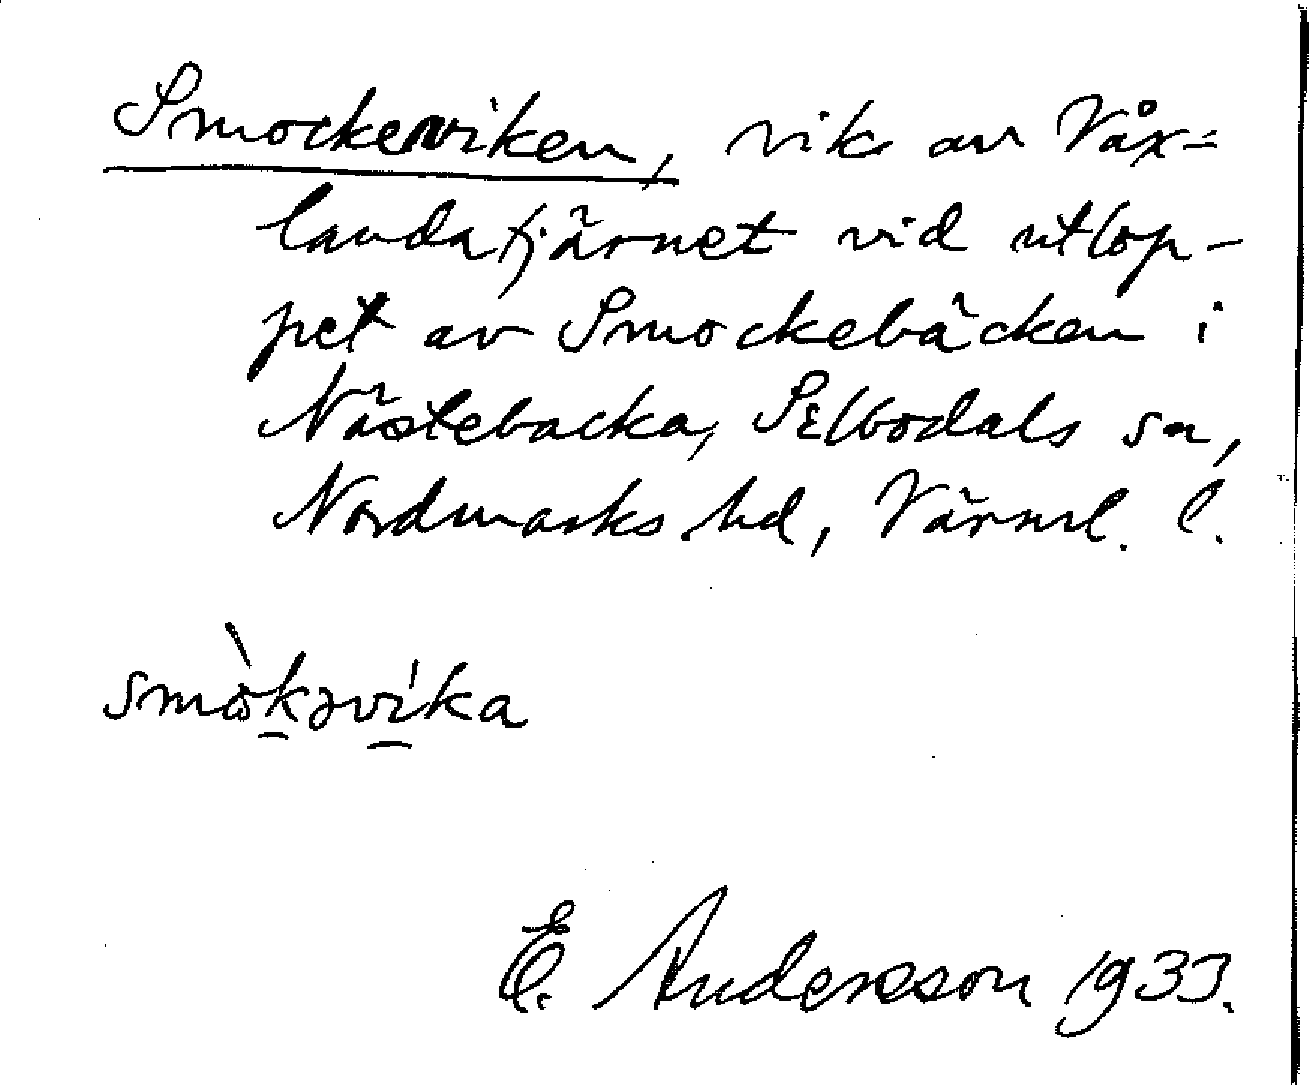 Smockeviken, vik av Våx=
landatjärnet vid utlop-
pet av Smockebäcken i
Nästebacka, Sillbodals sn,
Nordmarks hd, Värml. l.
smòkəvíka
E. Andersson 1933.